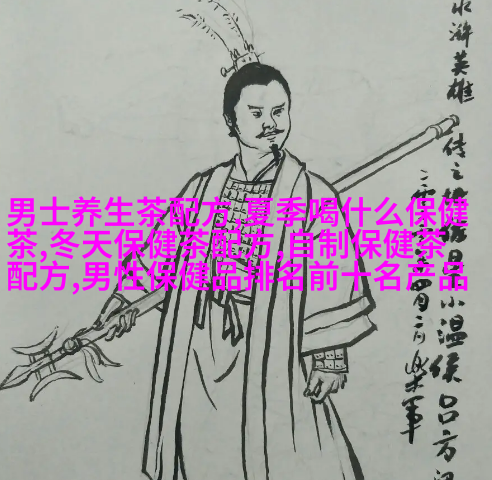 男士养生茶配方,夏季喝什么保健
茶,冬天保健茶配方,自制保健茶
配方,男性保健品排名前十名产品
水浒英雄
传之
小温侯吕方
柴军